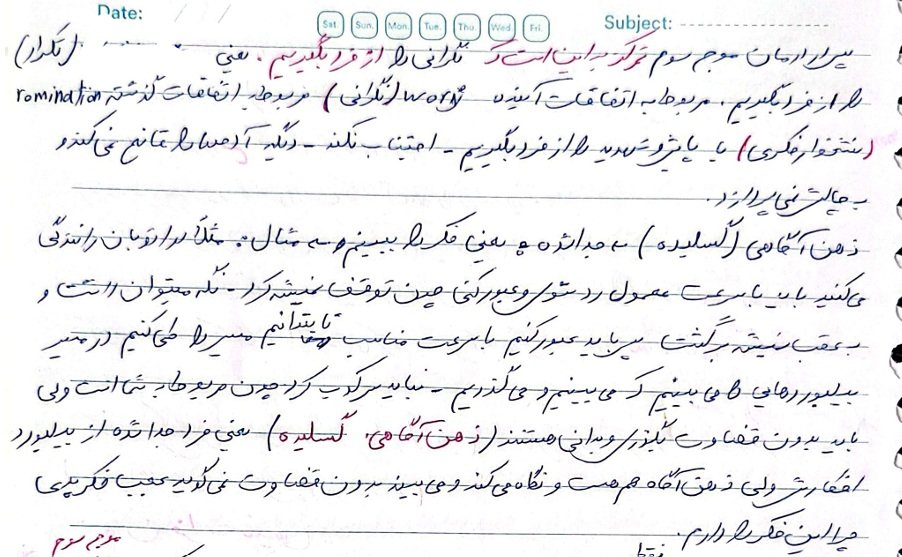 Date: / / Sat. Sun. Mon. Tue. Thu. Wed. Fri. Subject:
پس در درمان موج سوم تمرکز بر این است که نگرانی را از فرد بگیریم. یعنی (تکرار)
را از فرد بگیریم. مربوط به اتفاقات آینده worry (نگرانی) مربوط به اتفاقات گذشته romination
(نشخوار فکری) یا پایش تهدید را از فرد بگیریم - اجتناب نکند - دیگه آدمها را قانع نمی‌کند و
به چالش نمی‌پردازد.
ذهن آگاهی (گسلیده) ← جدا شده یعنی فکر را ببینم ← مثال: مثلاً در اتوبان رانندگی
می‌کنید باید با سرعت معمول رد شوی و عبور کنی چون توقف نمیشه کرد - نگه نمیتوان داشت و
به عقب نمیشه برگشت پس باید عبور کنیم با سرعت مناسب تا بتوانیم مسیر را طی کنیم در مسیر
بیلبوردهایی را می بینیم که می بینیم و می گذریم - نباید سرکوب کرد چون مربوط به شما است ولی
باید بدون قضاوت بگذری و بدانی هستند (ذهن آگاهی گسلیده) یعنی فرد جدا شده از بیلبورد
افکارش ولی ذهن آگاه هم هست و نگاه می کند و می بیند بدون قضاوت نمی گوید عجب فکر بدی
چرا این فکر را دارم.
موج سوم
فقط